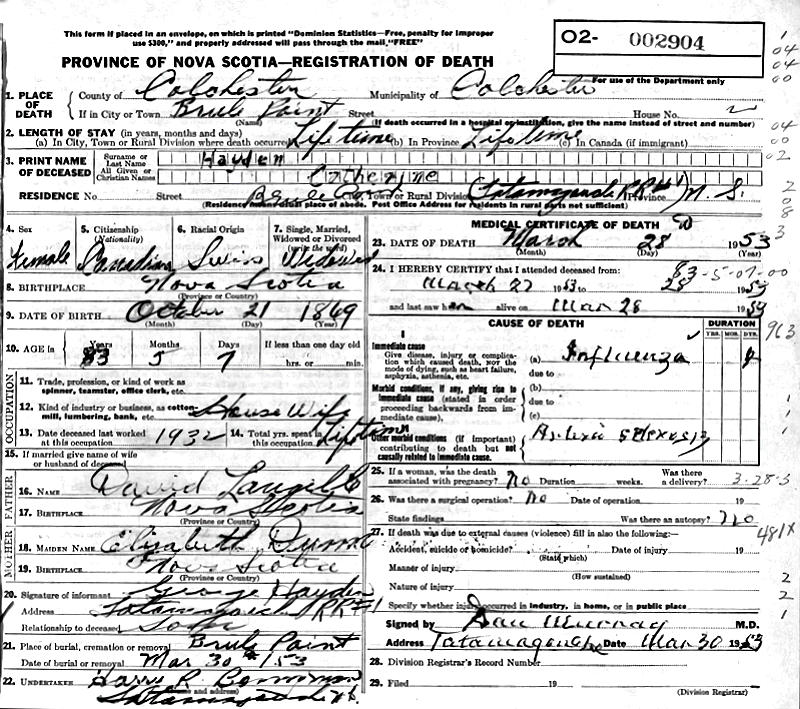 This form if placed in an envelope, on which is printed "Dominion Statistics—Free, penalty for improper
use $300," and properly addressed will pass through the mail, "FREE"
O2- 002904
For use of the Department only
PROVINCE OF NOVA SCOTIA—REGISTRATION OF DEATH
1. PLACE OF DEATH
County of Colchester Municipality of Colchester
If in City or Town Brule Point Street House No.
(Name) (If death occurred in a hospital or institution, give the name instead of street and number)
2. LENGTH OF STAY (in years, months and days)
(a) In City, Town or Rural Division where death occurred Lifetime (b) In Province Lifetime (c) In Canada (if immigrant)
3. PRINT NAME OF DECEASED
Surname or Last Name Hayden
All Given or Christian Names Catherine
RESIDENCE No. Street Brule Point City, Town or Rural Division (Tatamagouche RR#1) Province N. S.
(Residence means usual place of abode. Post Office Address for residents in rural parts not sufficient)
4. Sex Female
5. Citizenship (Nationality) Canadian
6. Racial Origin Swiss
7. Single, Married, Widowed or Divorced (write the word) Widowed
8. BIRTHPLACE Nova Scotia
(Province or Country)
9. DATE OF BIRTH October 21 1869
(Month) (Day) (Year)
10. AGE in Years Months Days If less than one day old
83 5 7 hrs. or min.
OCCUPATION
11. Trade, profession, or kind of work as spinner, teamster, office clerk, etc.
12. Kind of industry or business, as cotton-mill, lumbering, bank, etc. House Wife
13. Date deceased last worked at this occupation 1932
14. Total yrs. spent in this occupation Lifetime
15. If married give name of wife or husband of deceased
FATHER
16. NAME David Langille
17. BIRTHPLACE Nova Scotia
(Province or Country)
MOTHER
18. MAIDEN NAME Elizabeth
19. BIRTHPLACE Nova Scotia
(Province or Country)
20. Signature of informant George Hayden
Address Tatamagouche RR#1
Relationship to deceased Son
21. Place of burial, cremation or removal Brule Point
Date of burial or removal Mar 30th 1953
22. UNDERTAKER Harris R.
(Name and address)
Tatamagouche
MEDICAL CERTIFICATE OF DEATH
23. DATE OF DEATH March 28 1953
(Month) (Day) (Year)
24. I HEREBY CERTIFY that I attended deceased from:
83-5-07-00
March 27 1953 to 28 1953
and last saw her alive on Mar 28 1953
CAUSE OF DEATH DURATION
YRS. MOS. DYS.
I
Immediate cause
Give disease, injury or complication which caused death, not the mode of dying, such as heart failure, asphyxia, asthenia, etc.
(a) Influenza
due to
Morbid conditions, if any, giving rise to immediate cause (stated in order proceeding backwards from immediate cause).
(b)
due to
(c)
Other morbid conditions (if important) contributing to death but not causally related to immediate cause.
25. If a woman, was the death associated with pregnancy? No Duration weeks. Was there a delivery?
3-28-3
26. Was there a surgical operation? No Date of operation 19
State findings Was there an autopsy? No
481X
27. If death was due to external causes (violence) fill in also the following:—
Accident, suicide or homicide? Date of injury 19
(State which)
Manner of injury
(How sustained)
Nature of injury
Specify whether injury occurred in industry, in home, or in public place
Signed by Dan Murray M.D.
Address Tatamagouche Date Mar 30 1953
28. Division Registrar's Record Number
29. Filed 19
(Division Registrar)